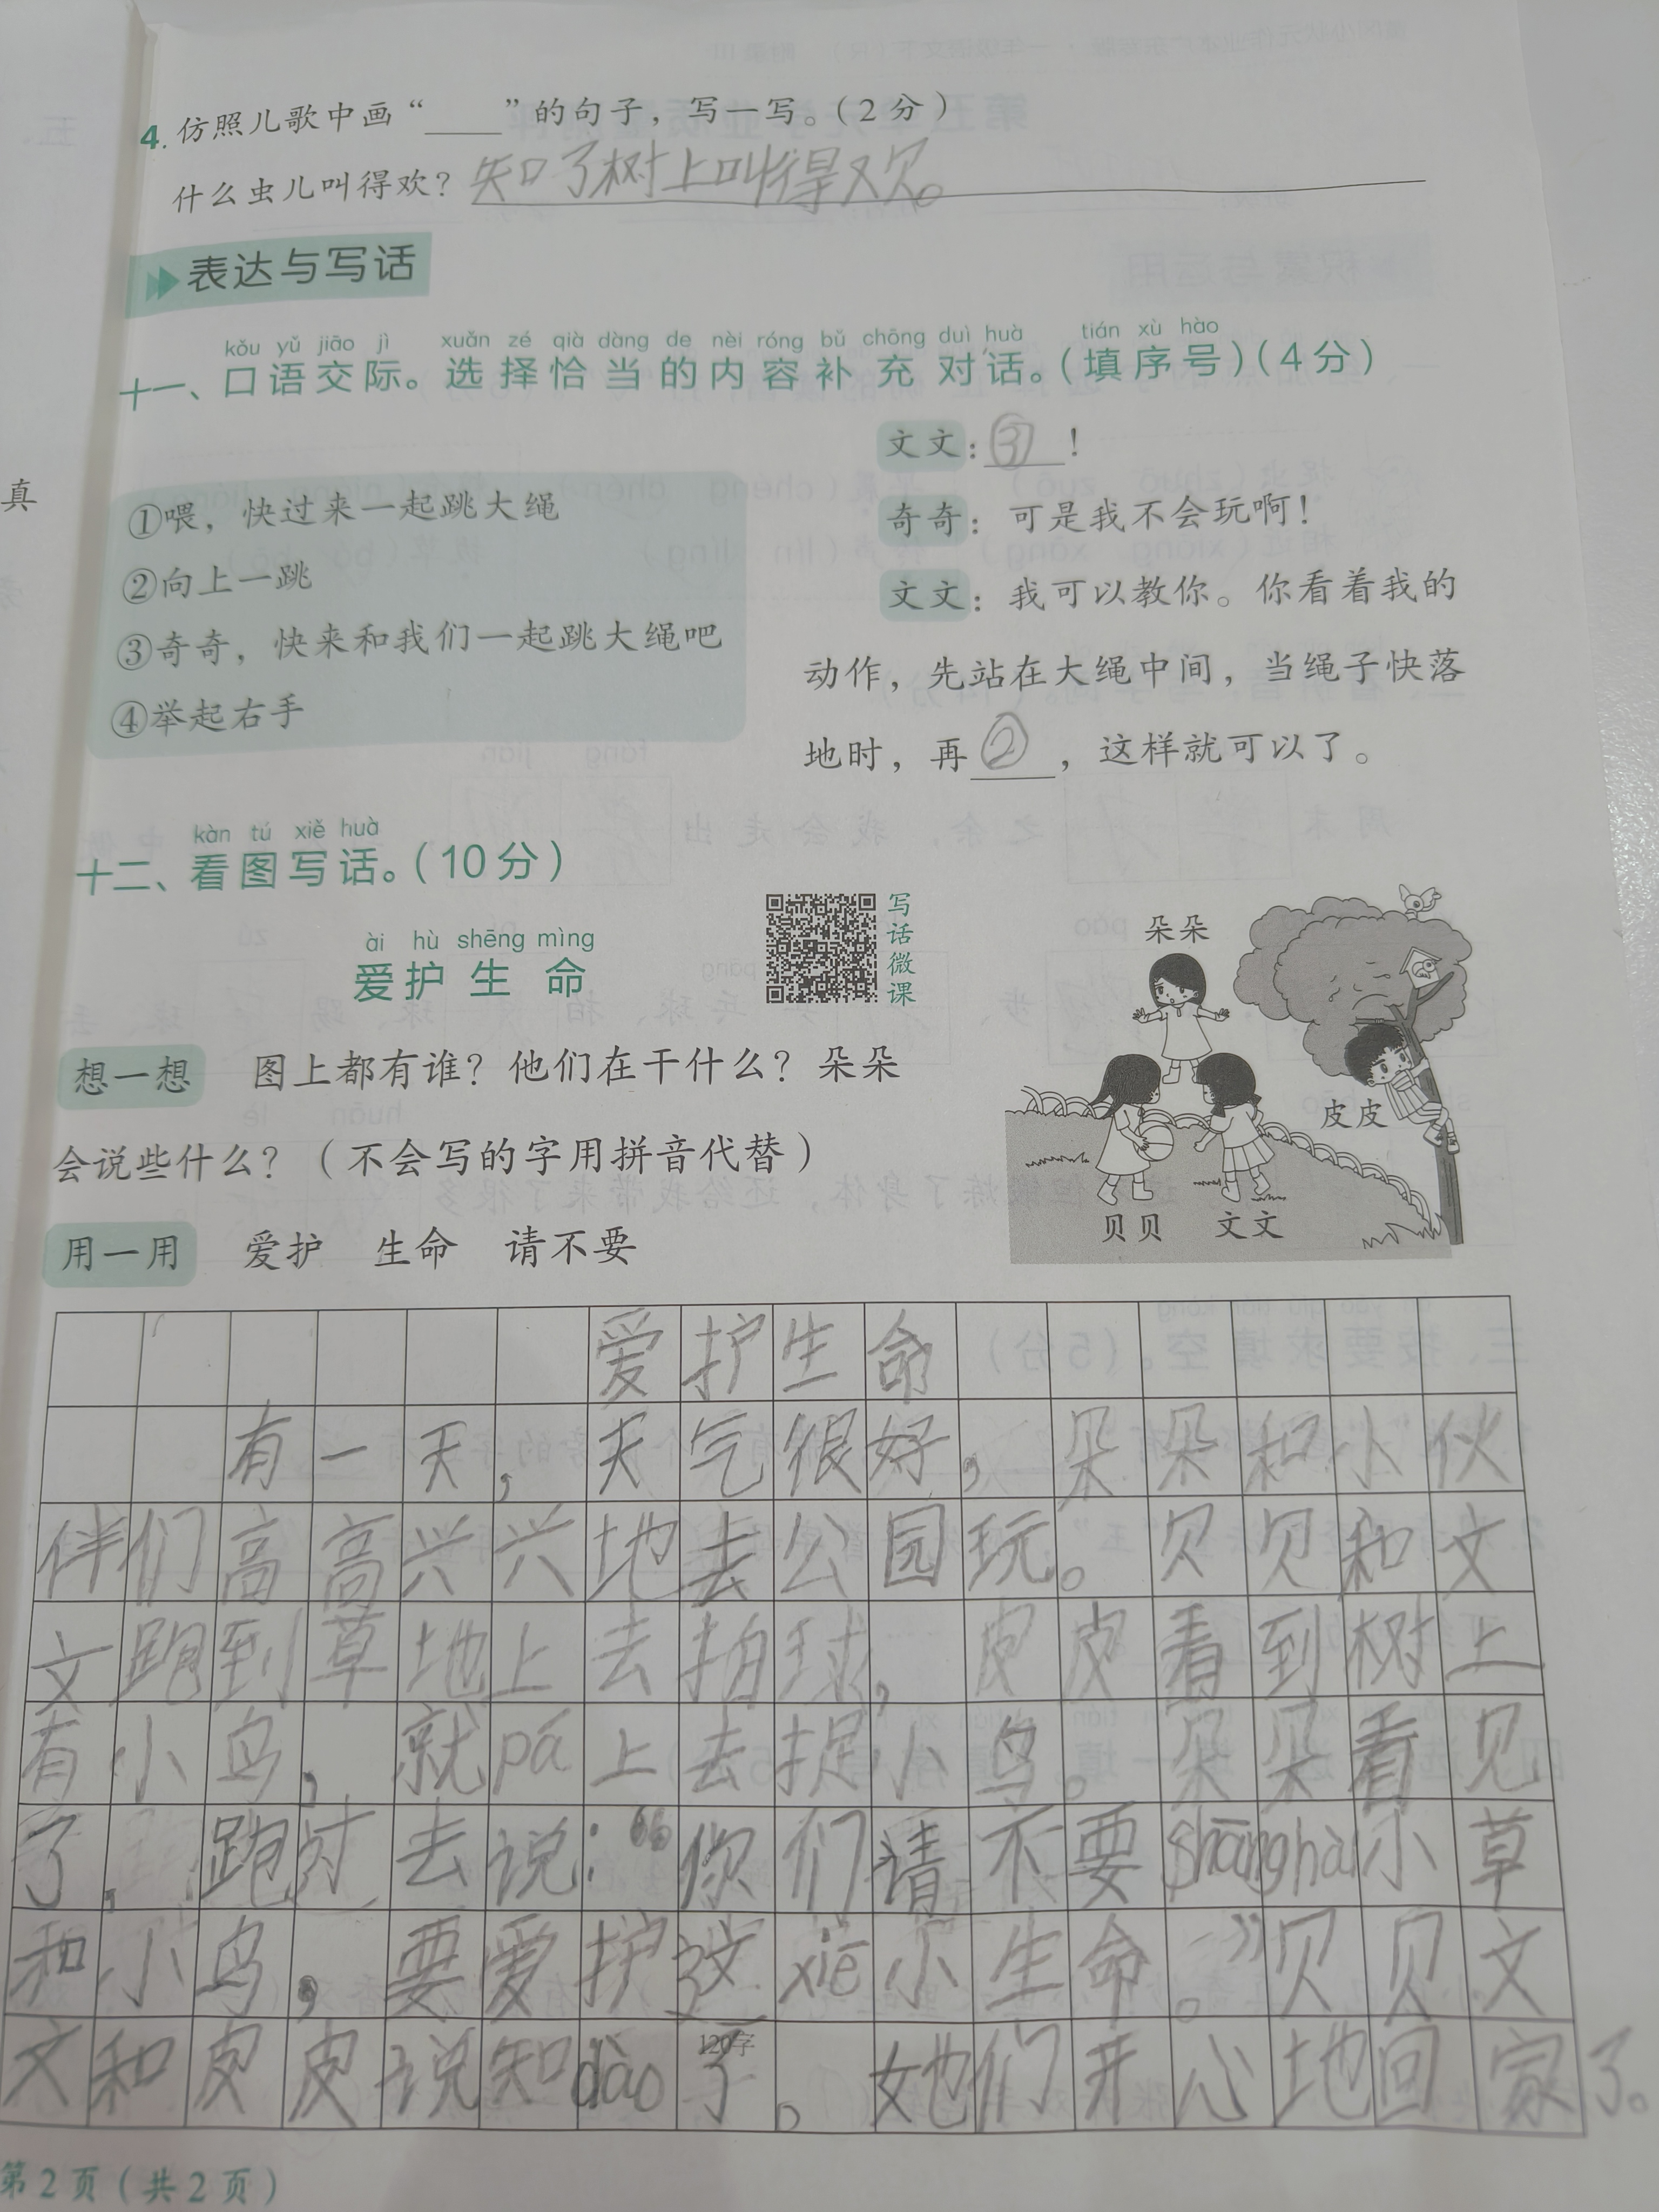 4. 仿照儿歌中画“____”的句子，写一写。(2分)
什么虫儿叫得欢？知了树上叫得欢。
表达与写话
kǒu yǔ jiāo jì xuǎn zé qià dàng de nèi róng bǔ chōng duì huà tián xù hào
十一、口语交际。选择恰当的内容补充对话。(填序号)(4分)
①喂，快过来一起跳大绳
②向上一跳
③奇奇，快来和我们一起跳大绳吧
④举起右手
文文：③！
奇奇：可是我不会玩啊！
文文：我可以教你。你看着我的
动作，先站在大绳中间，当绳子快落
地时，再②，这样就可以了。
kàn tú xiě huà
十二、看图写话。(10分)
ài hù shēng mìng
爱护生命
写话微课
朵朵
皮皮
贝贝 文文
想一想 图上都有谁？他们在干什么？朵朵
会说些什么？(不会写的字用拼音代替)
用一用 爱护 生命 请不要
爱护生命
有一天，天气很好，朵朵和小伙
伴们高高兴兴地去公园玩。贝贝和文
文跑到草地上去拍球，皮皮看到树上
有小鸟，就pá上去捉小鸟。朵朵看见
了，跑过去说：“你们请不要shānghài小草
和小鸟，要爱护这xiē小生命。”贝贝文
文和皮皮说知dào了。她们开心地回家了。
120字
第2页(共2页)
真